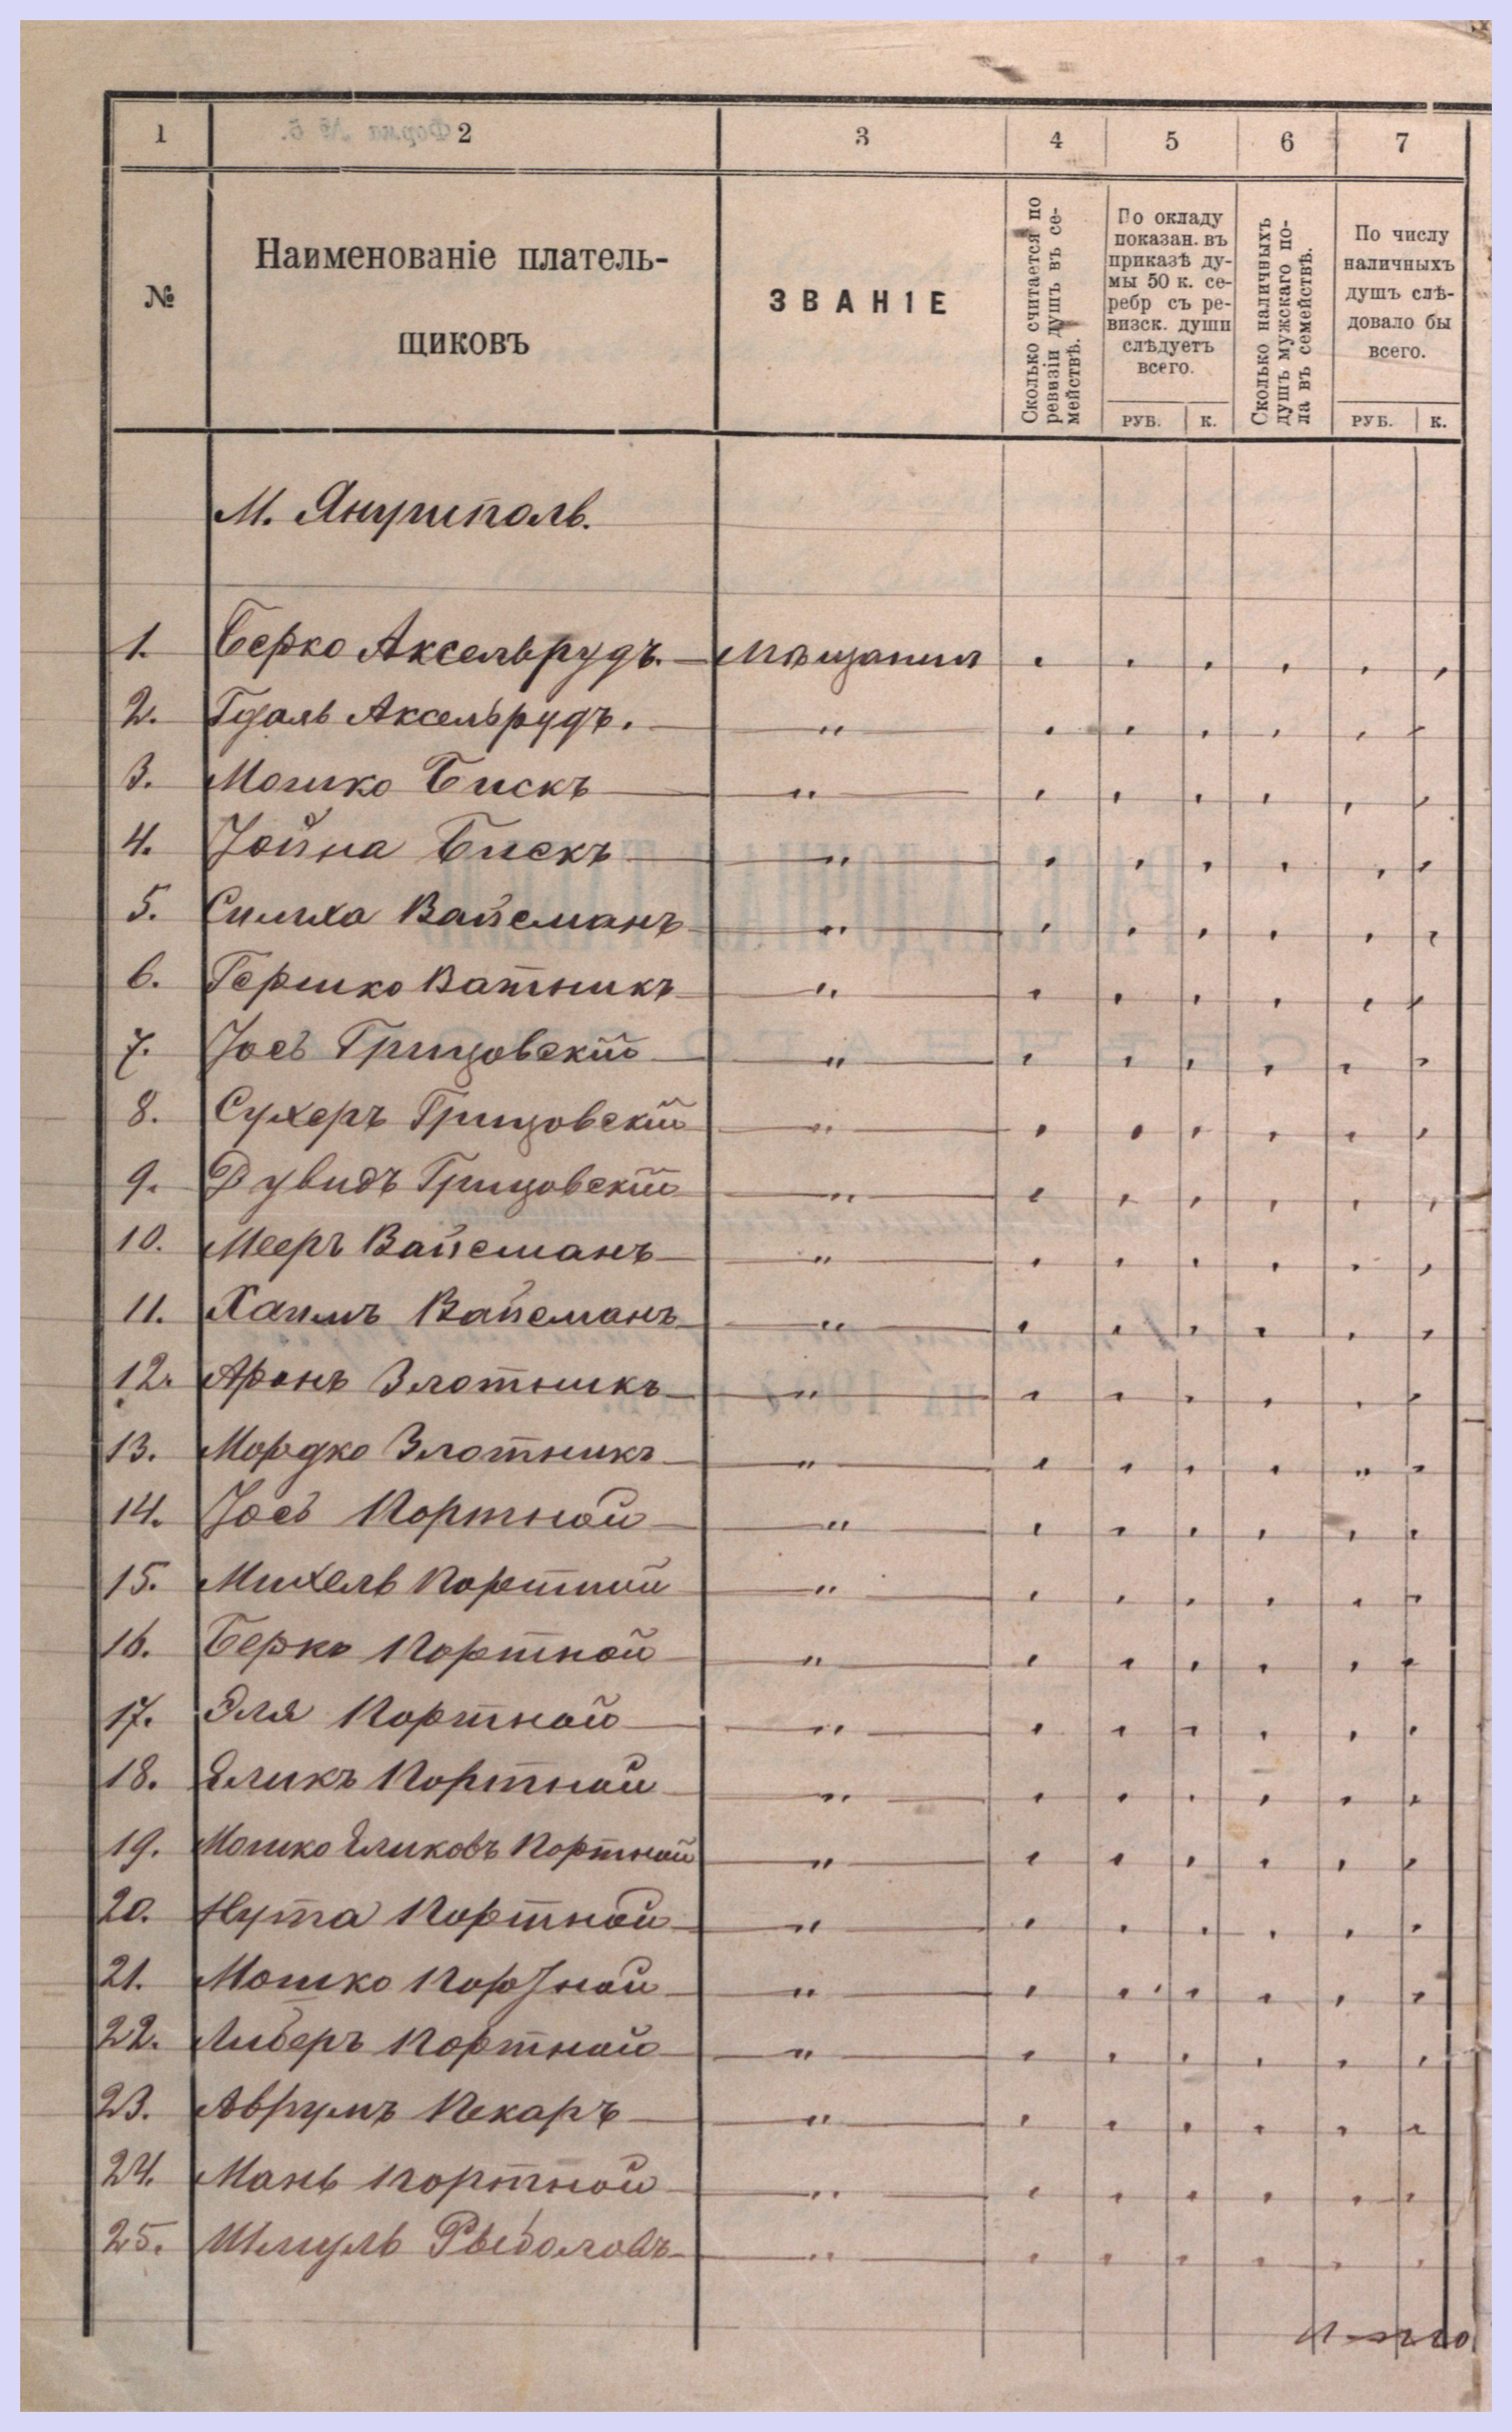 1 2 3 4 5 6 7
№
Наименованіе платель-
щиковъ
ЗВАНІЕ
Сколько считается по
ревизіи душъ въ се-
мействѣ.
По окладу
показан. въ
приказѣ ду-
мы 50 к. се-
ребр съ ре-
визск. души
слѣдуетъ
всего.
РУБ. К.
Сколько наличныхъ
душъ мужскаго по-
ла въ семействѣ.
По числу
наличныхъ
душъ слѣ-
довало бы
всего.
РУБ. К.
М. Янушполь.
1. Берко Аксельрудъ. Мѣщанин
2. Гдаль Аксельрудъ. "
3. Мошко Бискъ "
4. Іойна Бискъ "
5. Симха Вайсманъ "
6. Гершко Ватникъ "
7. Іось Грицовскій "
8. Сухеръ Грицовскій "
9. Дувидъ Грицовскій "
10. Мееръ Вайсманъ "
11. Хаимъ Вайсманъ "
12. Аронъ Злотникъ "
13. Мордко Злотникъ "
14. Іось Портной "
15. Михель Портной "
16. Берко Портной "
17. Эля Портной "
18. Еликъ Портной "
19. Мошко Еликовъ Портной "
20. Нута Портной "
21. Мошко Портной "
22. Либеръ Портной "
23. Аврумъ Пекаръ "
24. Мань Портной "
25. Шмуль Рыболовъ "